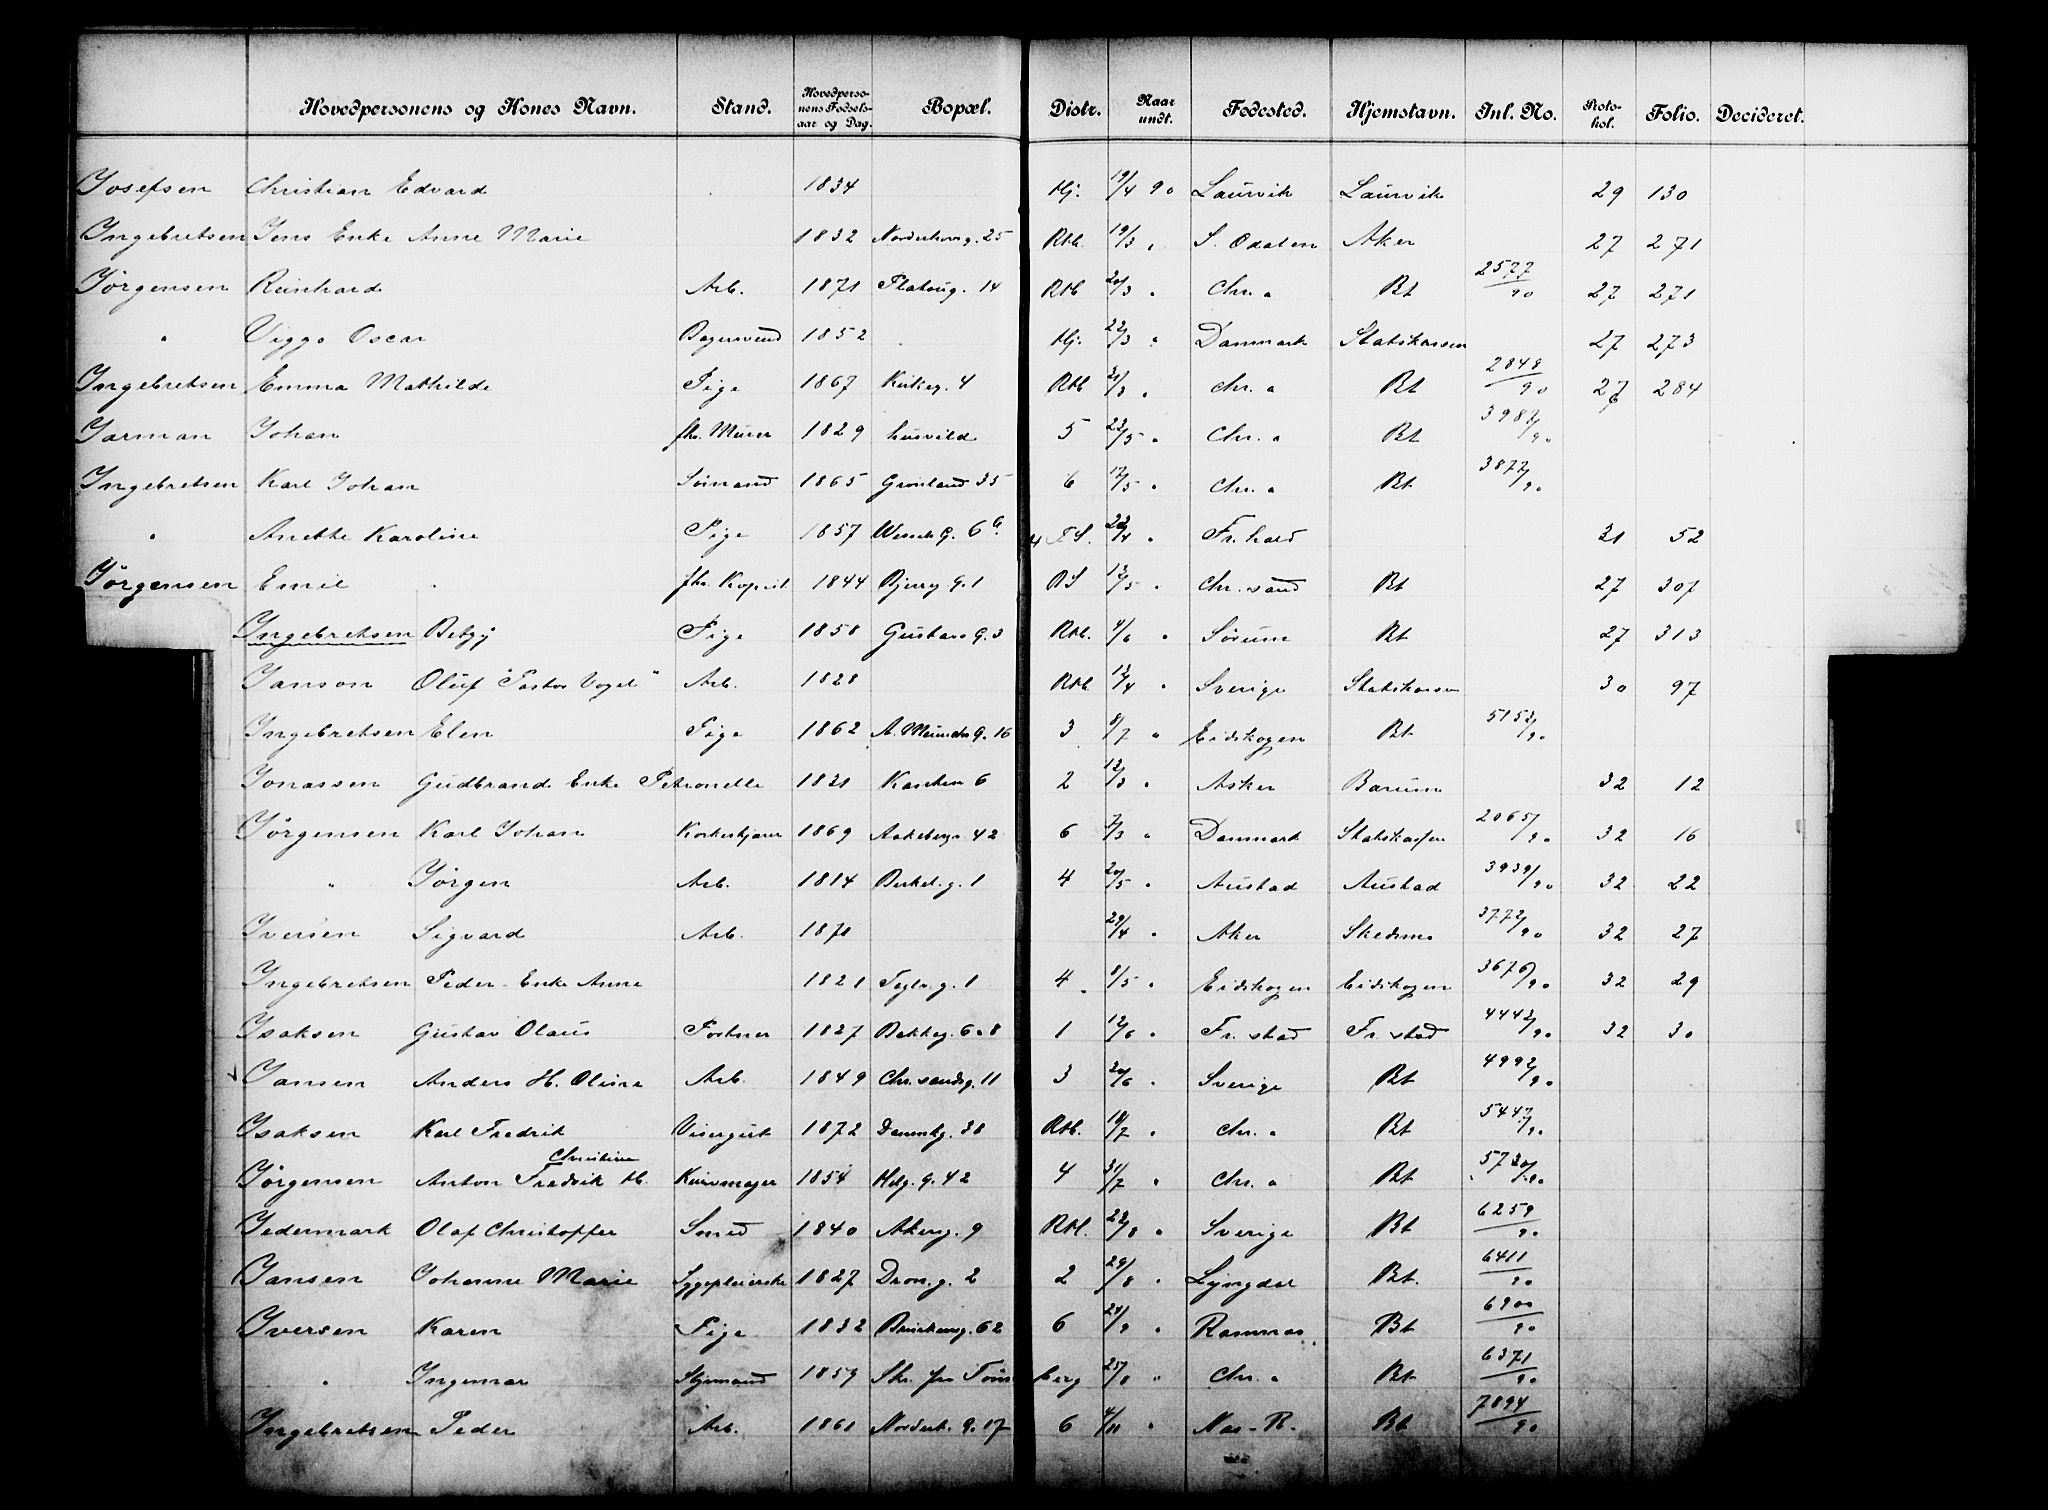 Hovedpersonens og Kones Navn. Stand. Hovedperso-nens Fødsels-aar og Dag. Bopæl. Distr. Naar undt. Fødested. Hjemstavn. Inl. No. Proto-kol. Folio. Decideret.
Josefsen Christian Edvard 1834 Hj. 19/4 90 Laurvik Laurvik 29 130
Ingebretsen Jens Enke Anne Marie 1832 25 Rkl. 19/3 " S. Odalen Aker 27 271
Jörgensen Reinhard Arb. 1871 Platoug. 14 Rkl 20/3 " Chr. a Bt 2577/90 27 271
" Viggo Oscar Bagersvend 1852 Hj. 22/3 " Danmark Statskassen 27 273
Ingebretsen Emma Mathilde Pige 1867 Kirkeg. 4 Rkl 21/3 " Chr. a Bt 2848/90 27 284
Jarman Johan fhv. Murer 1829 husvild 5 23/5 " Chr. a Bt 90
Ingebretsen Karl Johan Sömand 1865 Grönland 35 6 17/5 " Chr. a Bt 3877/90
" Anette Karoline Pige 1857 Wessels G. 6 b. 22/4 " Fr. hald 31 52
Jörgensen Emil 1844 Bjerrg. 1 RS 12/5 " Chr. sand Bt 27 307
Ingebretsen Betzy Pige 1858 Gustavs G. 3 Rkl. 4/6 " Sörum Bt 27 313
Janson Oluf "Pastor Vogel" Arb. 1828 Rkl. 12/4 " Sverige Statskassen 30 97
Ingebretsen Elen Pige 1862 A. Munchs G. 16 3 8/7 " Eidskogen Bt 5152/90
Jonassen Gudbrand Enke Petronelle 1821 6 2 12/3 " Asker Bærum 32 12
Jörgensen Karl Johan 1869 Aakebergv 42 6 7/3 " Danmark Statskassen 2065/90 32 16
" Jörgen Arb. 1814 Birkel. g. 1 4 20/5 " Austad Austad 3939/90 32 22
Iversen Sigvard Arb. 1871 29/4 " Aker Skedsmo 3772/90 32 27
Ingebretsen Peder Enke Anne 1821 Teglv. g. 1 4 8/5 " Eidskogen Eidskogen 3676/90 32 29
Isaksen Gustav Olaus Portner 1827 Bakkeg. 6 8 1 12/6 " Fr. stad Fr. stad 4442/90 32 30
Jansen Anders H. Oline Arb. 1849 Chr. sandsg. 11 3 20/6 " Sverige Bt 4992/90
Isaksen Karl Fredrik Visergut 1872 Dannbg. 38 Rkl. 18/7 " Chr. a Bt 5447/90
Christine
Jörgensen Anton Fredrik H. Kurvmager 1854 Helg. G. 42 4 31/7 " Chr. a Bt 5730/90
Jedermark Olaf Christoffer Smed 1840 Akersg. 9 Rkl. 22/8 " Sverige Bt 6259/90
Jansen Johanne Marie Sygepleierske 1827 Dron. g. 2 2 29/8 " Lyngdal Bt. 6411/90
Iversen Karen Pige 1832 Brinkeng. 62 6 " Ramnæs Bt 6900/90
" Ingemar Styrmand 1859 Sk. fra Töns berg 25/8 " Chr. a Bt 6371/90
Ingebretsen Peder Arb. 1861 Norderh. G. 17 6 4/11 " Næs-R. Bt 7894/90